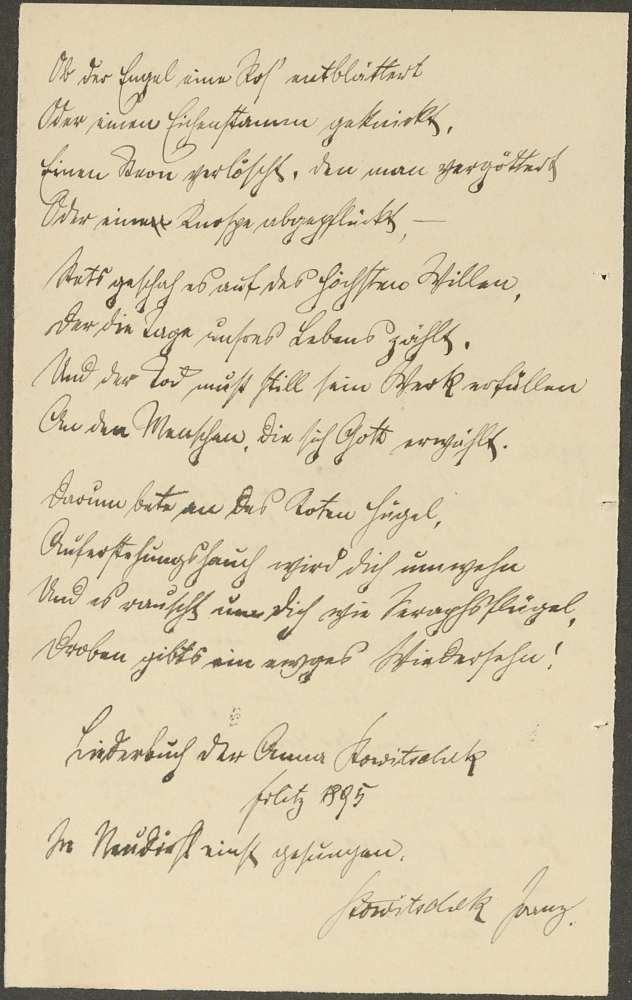 Ob der Engel eine Ros' entblättert
Oder einen Eichenstamm geknickt,
Einen Stern verlöscht, den man vergöttert
Oder eine Knospe abgepflückt, —
Stets geschah es auf des Höchsten Willen,
Der die Tage unsres Lebens zählt,
Und der Tod muß still sein Werk erfüllen
An den Menschen, die sich Gott erwählt.
Darum bete an des Toten Hügel,
Auferstehungshauch wird dich umwehn
Und es rauscht um dich wie Seraphsflügel,
Droben gibts ein ewges Wiedersehn!
Liederbuch der Anna
1895
In Neudorf einst gesungen.
Franz.